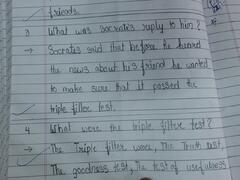 friends.
3 What was Socrates reply to him?
→ Socrates said that before he heared
the news about his friend he wanted
to make sure that it passed the
triple filter test.
4 What were the triple filtre test?
→ The Triple filter were, The Truth test.
The goodness test, The test of usefulness